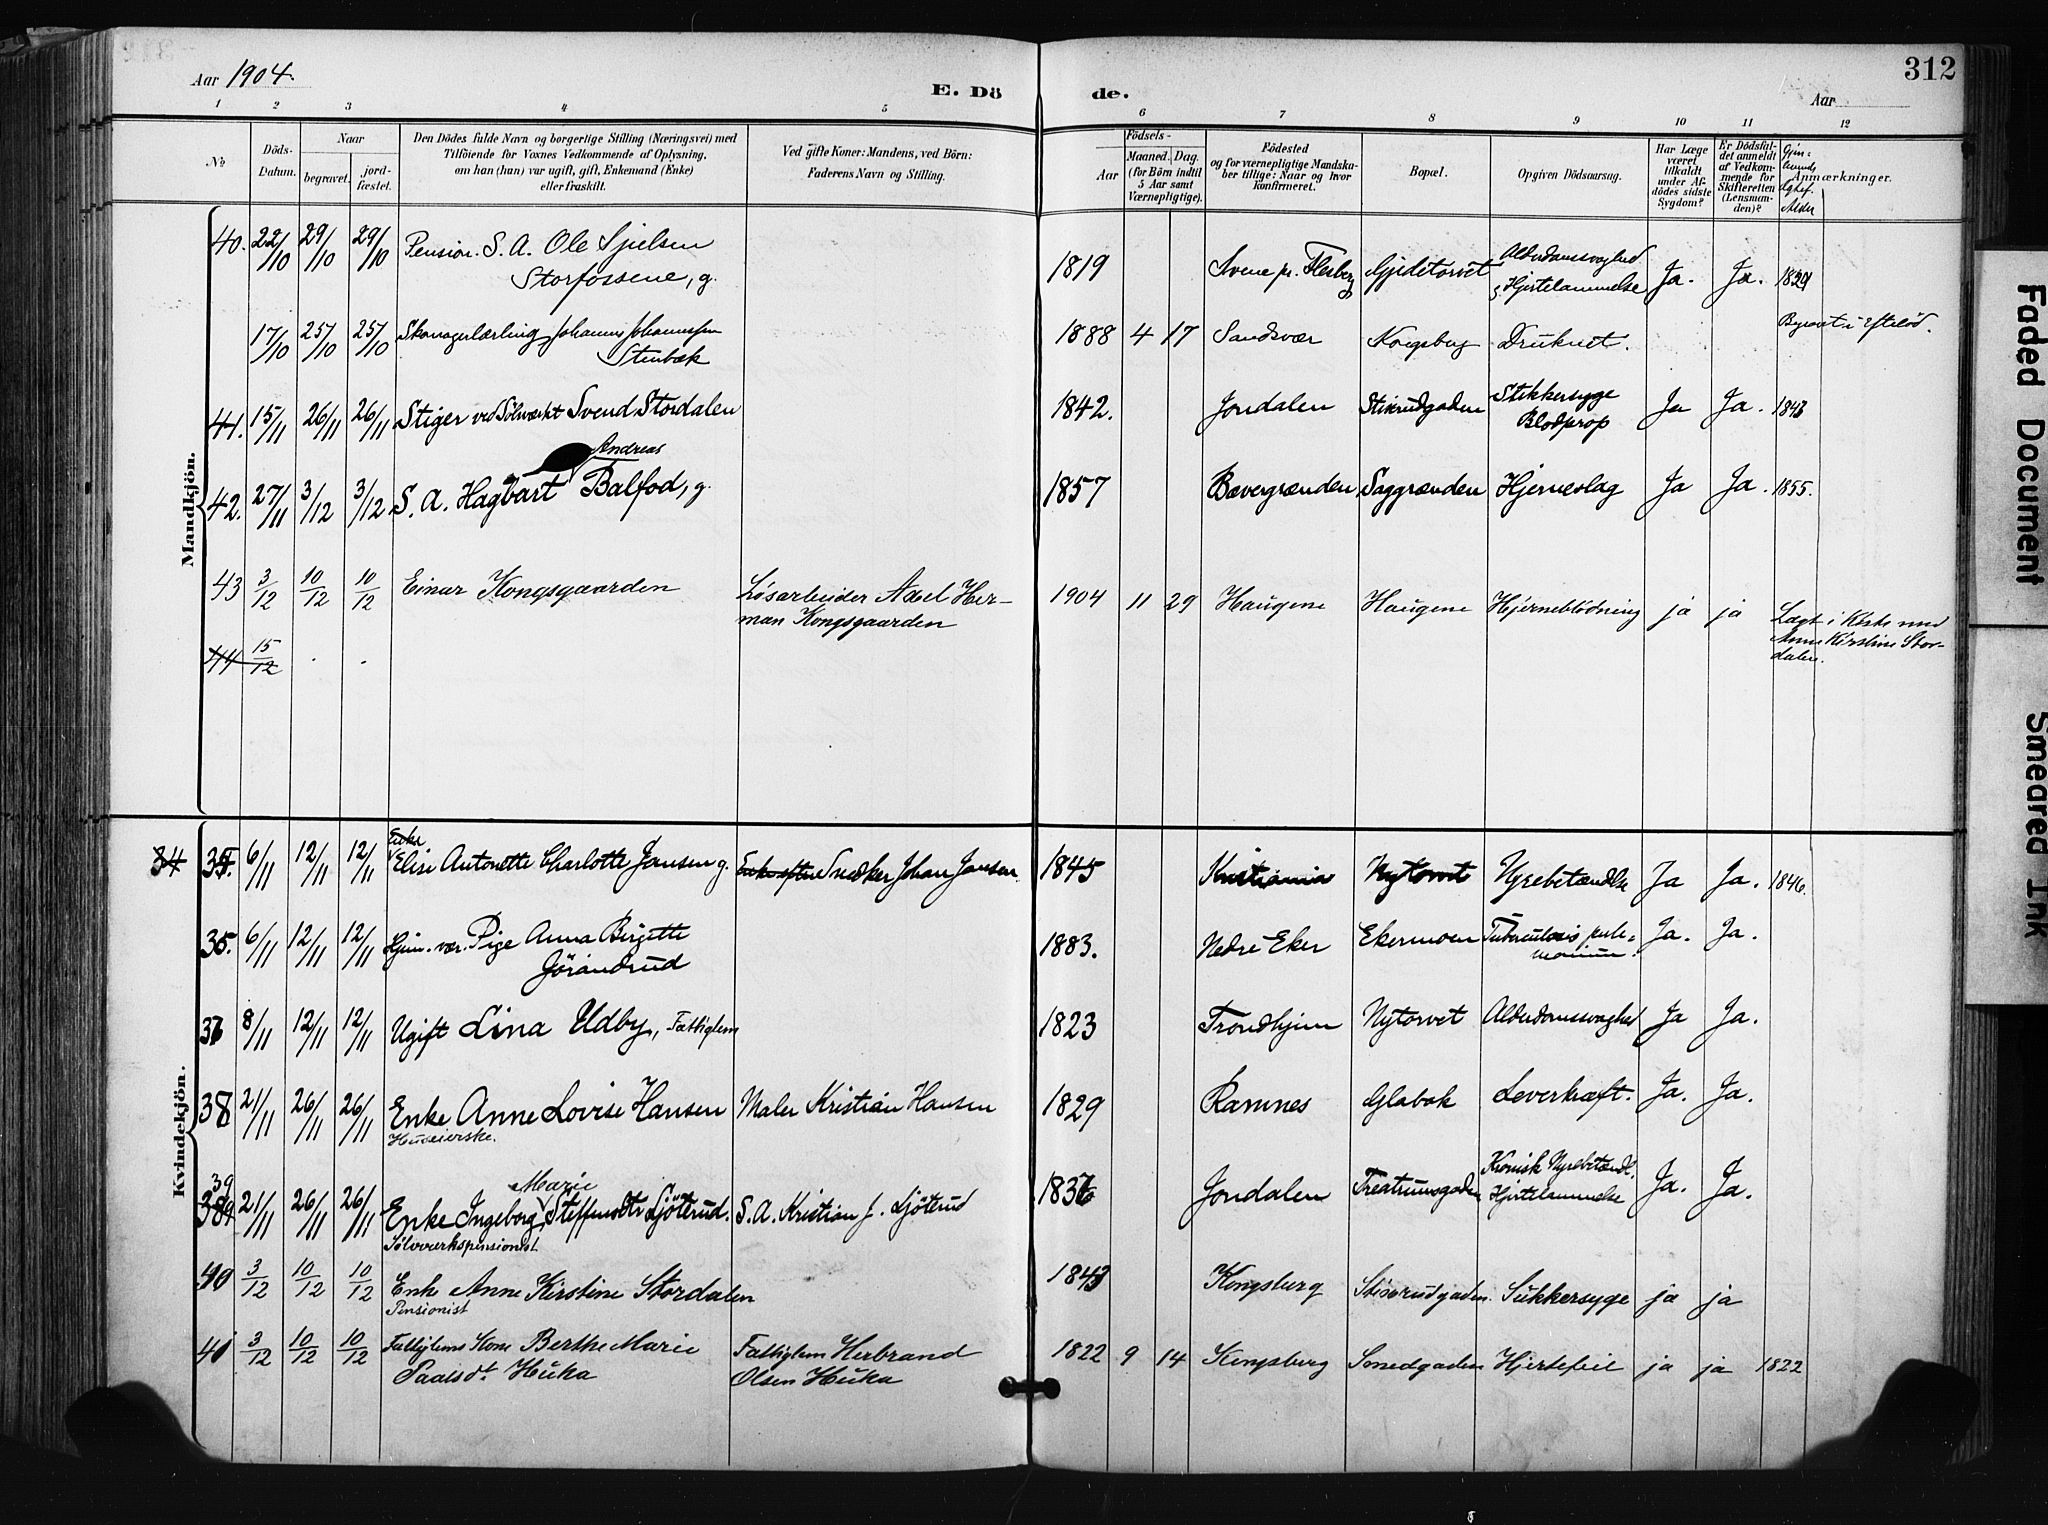 312
Aar 1904.
E. Dö de.
Aar
1 2 3 4 5 6 7 8 9 10 11 12
No
Döds-
Datum.
Naar
begravet.
jord-
fæstet.
Den Dödes fulde Navn og borgerlige Stilling (Næringsvei) med
Tilföiende for Voxnes Vedkommende af Oplysning,
om han (hun) var ugift, gift, Enkemand (Enke)
eller fraskilt.
Ved gifte Koner: Mandens, ved Börn:
Faderens Navn og Stilling.
Födsels-
Aar
Maaned.
Dag.
(for Börn indtil
5 Aar samt
Værnepligtige).
Födested
og for værnepligtige Mandska-
ber tillige: Naar og hvor
konfirmeret.
Bopæl.
Opgiven Dödsaarsag.
Har Læge
været
tilkaldt
under Af-
dödes sidste
Sygdom?
Er Dödsfal-
det anmeldt
af Vedkom-
mende for
Skifteretten
(Lensman-
den)?
Anmærkninger.
Alder
Mandkjön.
40. 22/10 29/10 29/10 Pension. S. A. Ole
Storfossene, g.
1819 pr. Flesberg Gjedetorvet Alderdomssvaghed
Hjertelammelse Ja. Ja. 1829
17/10 25/10 25/10 Skomagerlærling Johannes Johannessen
Stenbæk
1888 4 17 Sandsvær Kongsberg Druknet. i Efteløt.
41. 15/11 26/11 26/11 Stiger ved Sölvværket Svend Stordalen
1842. Jondalen Stikkersyge
Blodprop Ja Ja. 1843
Andreas
42. 27/11 3/12 3/12 S. A. Hagbart Balfod, g.
1857 Bævergrænden Saggrænden Hjerneslag Ja Ja. 1855.
43 3/12 10/12 10/12 Einar Kongsgaarden Lösarbeider Axel Her-
man Kongsgaarden
1904 11 29 Haugene Haugene Hjerneblödning ja ja Lagt i Kiste med
Anne Kirstine Stor-
dalen.
44 15/12 . .
Kvindekjön.
Enke
34 35. 6/11 12/11 12/11 Elise Antonette Charlotte Jansen g. Enke efter Snedker Johan Jansen.
1845 Kristiania Nytorvet Nyrebetændelse Ja Ja. 1846.
35. 6/11 12/11 12/11 Hjem. vær. Pige Anna Birgitte
Jörandrud
1883. Nedre Eker Ekermoen Tuberculosis pul-
monum. Ja. Ja.
37 8/11 12/11 12/11 Ugift Lina Udby, Fattiglem
1823 Trondhjem Nytorvet Alderdomssvaghed Ja Ja.
38 21/11 26/11 26/11 Enke Anne Lovise Hansen Maler Kristian Hansen
Huseierske.
1829 Ramnes Glabak Leverkræft. Ja. Ja.
39 Marie
21/11 26/11 26/11 Enke Ingeborg Steffensdtr Ljöterud. S. A. Kristian J. Ljöterud
Sölvværkspensionist
1836 Jondalen Treatrumsgaden Kronisk Nyrebetændl.
Hjertelammelse Ja. Ja.
40 3/12 10/12 10/12 Enk Anne Kirstine Stordalen
Pensionist
1843 Kongsberg Sukkersyge ja ja
41 3/12 10/12 10/12 Fattiglems Kone Berthe Marie
Paalsdt. Huka
Fattiglem Herbrand
Olsen Huka
1822 9 14 Kongsberg Hjertefeil ja ja 1822
Faded Document
Smeared Ink